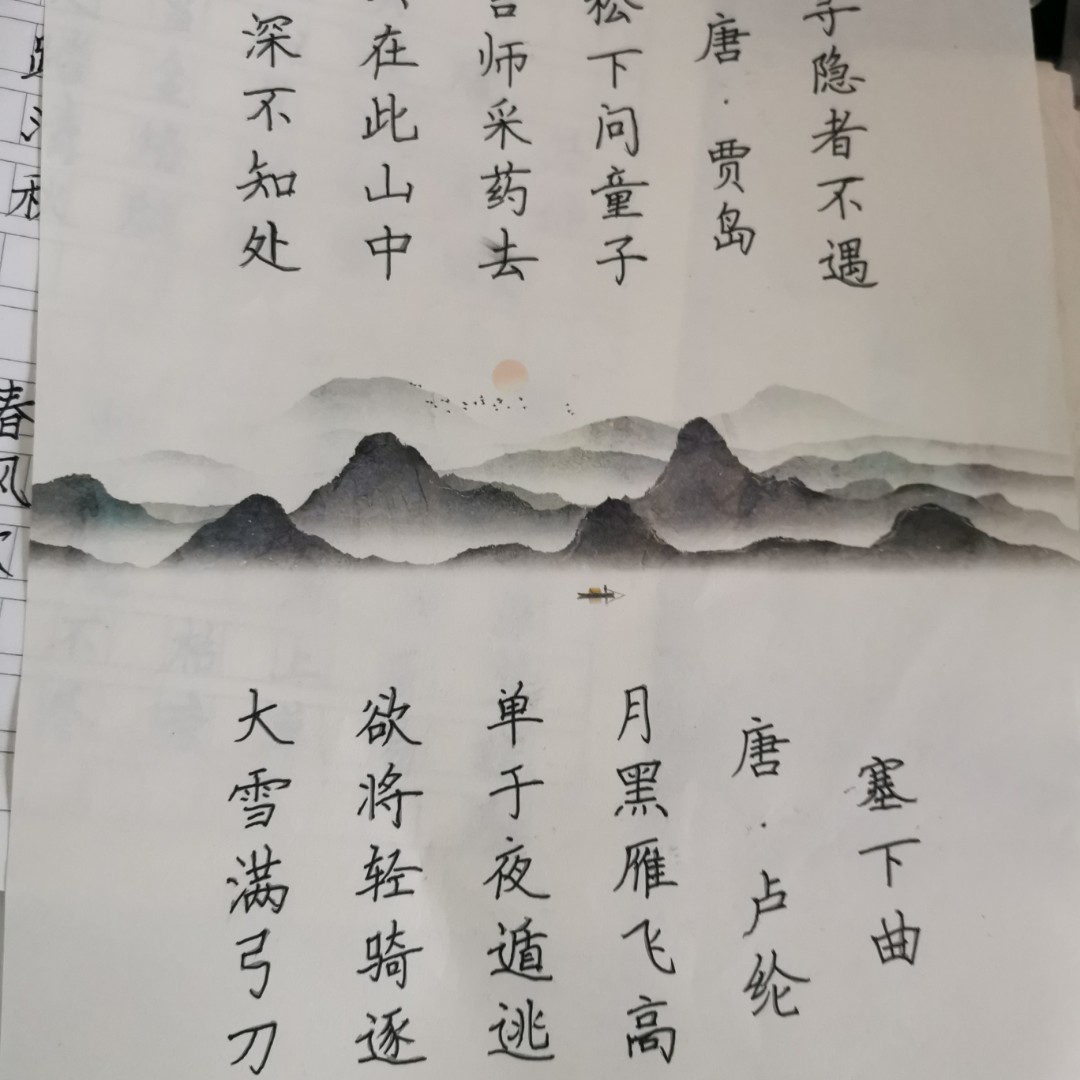 寻隐者不遇
唐·贾岛
松下问童子
言师采药去
在此山中
深不知处
塞下曲
唐·卢纶
月黑雁飞高
单于夜遁逃
欲将轻骑逐
大雪满弓刀
春风